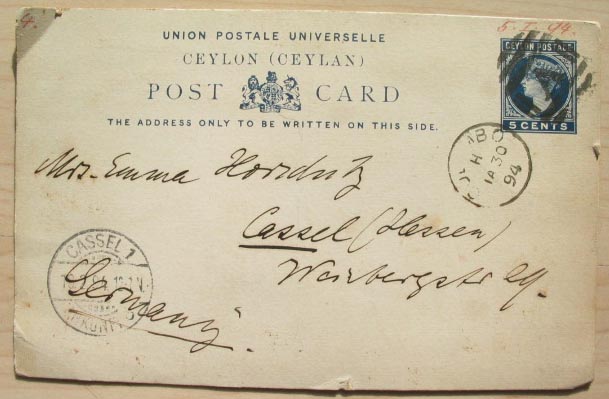 4.
5. I. 94.
UNION POSTALE UNIVERSELLE
CEYLON (CEYLAN)
POST CARD
THE ADDRESS ONLY TO BE WRITTEN ON THIS SIDE.
CEYLON POSTAGE
5 CENTS
JA 30
94
Mrs. Emma Horschitz
Cassel (Hessen)
CASSEL 1
Germany.